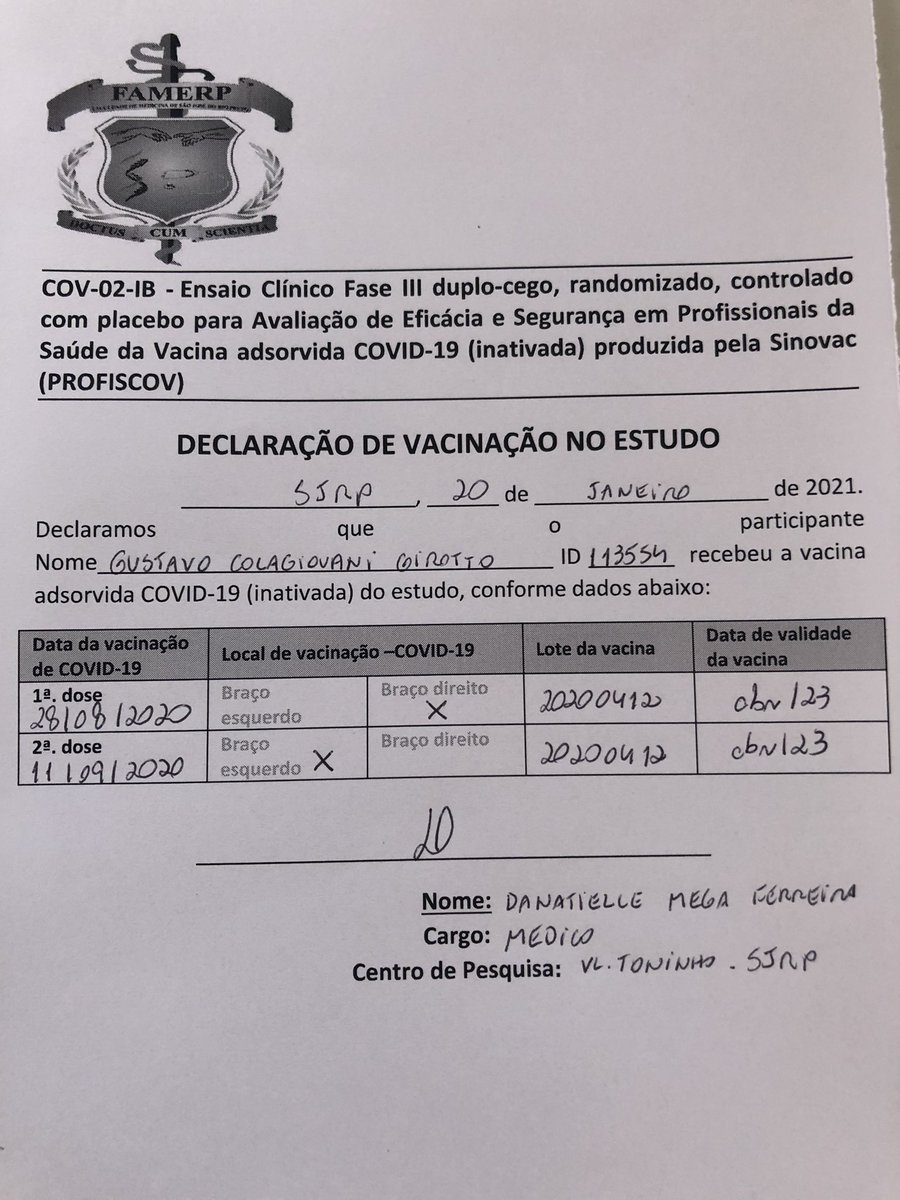 FAMERP
FACULDADE DE MEDICINA DE SÃO JOSÉ DO RIO PRETO
DOCTUS CUM SCIENTIA
COV-02-IB - Ensaio Clínico Fase III duplo-cego, randomizado, controlado
com placebo para Avaliação de Eficácia e Segurança em Profissionais da
Saúde da Vacina adsorvida COVID-19 (inativada) produzida pela Sinovac
(PROFISCOV)
DECLARAÇÃO DE VACINAÇÃO NO ESTUDO
SJRP, 20 de JANEIRO de 2021.
Declaramos que o participante
Nome GUSTAVO COLAGIOVANI GIROTTO ID 113554 recebeu a vacina
adsorvida COVID-19 (inativada) do estudo, conforme dados abaixo:
Data da vacinação de COVID-19 Local de vacinação –COVID-19 Lote da vacina Data de validade da vacina
1ª. dose 28/08/2020 Braço esquerdo Braço direito X 20200412 abr/23
2ª. dose 11/09/2020 Braço esquerdo X Braço direito 20200412 abr/23
Nome: DANATIELLE MEGA FERREIRA
Cargo: MEDICO
Centro de Pesquisa: VL. TONINHO - SJRP